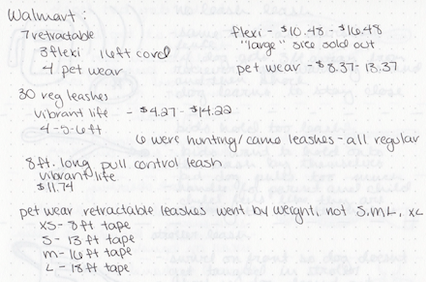 Walmart:
7 retractable
3 flexi 16ft cord
4 pet wear
flexi - $10.48 - $16.48
"large" size sold out
pet wear - $8.37 - 13.37
30 reg leashes
vibrant life - $4.27 - $14.22
4-5-6ft
6 were hunting/camo leashes - all regular
8ft. long pull control leash
vibrant life
$11.74
pet wear retractable leashes went by weight, not S, M, L, XL
XS - 8 ft tape
S - 13 ft tape
M - 16 ft tape
L - 18ft tape